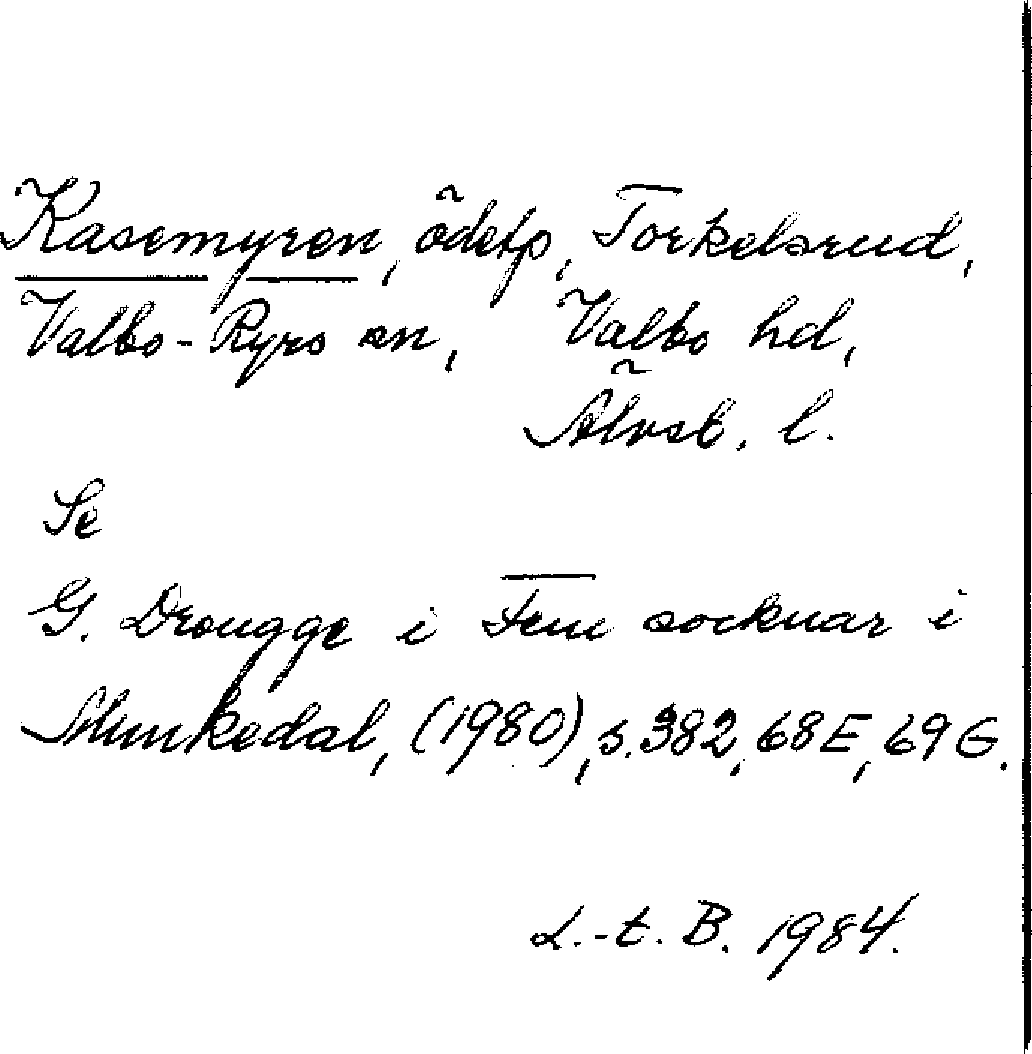 Kasemyren, ödetp, Torkelsrud,
Valbo-Ryrs sn, Valbo hd,
Älvsb. l.
Se
G. Drougge i Fem socknar i
Munkedal, (1980), s. 382, 68E, 69G.
L.-t. B. 1984.